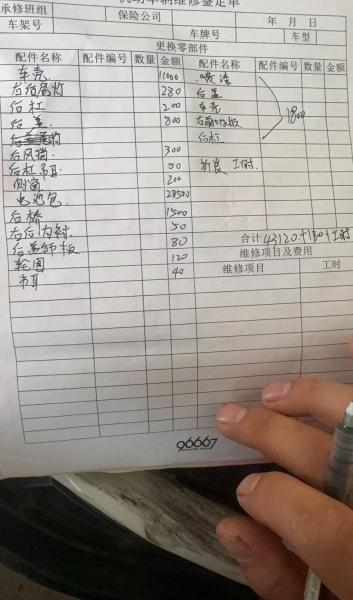 机动车辆维修鉴定单
承修班组 保险公司 年 月 日
车架号 车牌号 车型
更换零部件
配件名称 配件编号 数量 金额 配件名称 配件编号 数量 金额
车壳 11000 喷漆
右后尾灯 280 后盖
后杠 200 车壳
后盖 800 1800
后杠
后风挡 300
后杠吊耳 50 拆装工时
侧窗 200
电池包 28500
后桥 1500
右后内衬 50 合计 43120+1800+工时
后盖饰板 80 维修项目及费用
轮圈 120 维修项目 工时
吊耳 40
96667